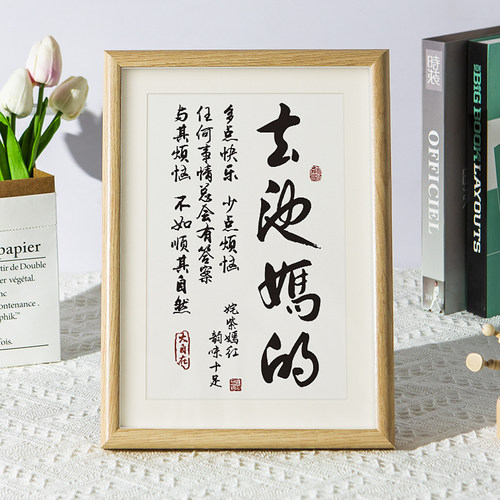 去池媽的
多点快乐 少点烦恼
任何事情总会有答案
与其烦恼 不如顺其自然
大自在
姹紫嫣红
韵味十足
papier
tir de Double
er végétal.
ontenance :
時裝
OFFICIEL
BIG BOOK LAYOUTS